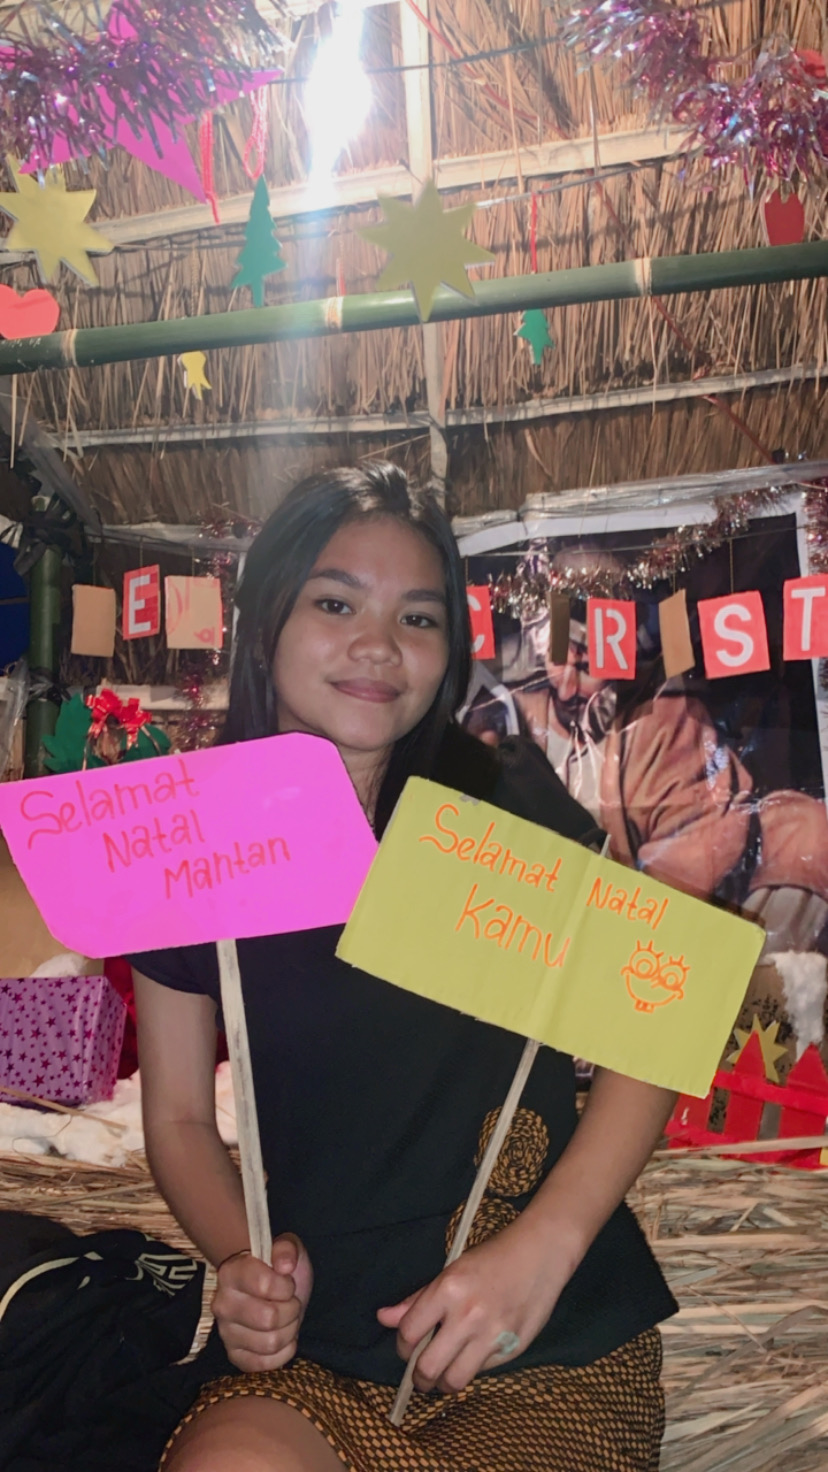 E
C R S T
Selamat
Natal
Mantan
Selamat Natal
Kamu